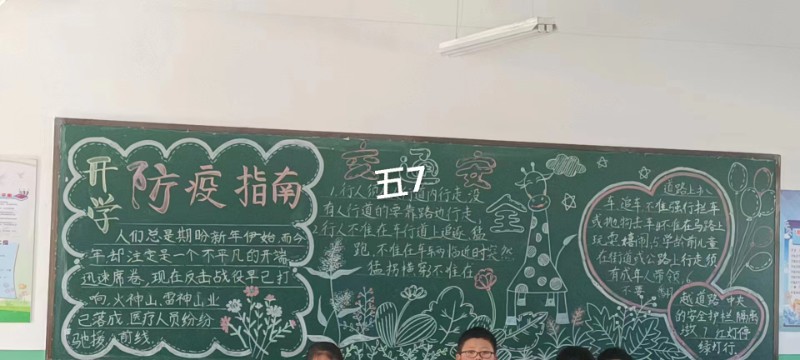 开学
防疫指南
人们总是期盼新年伊始,而今
年却注定是一个不平凡的开端
迅速席卷,现在反击战役早已打
响,火神山,雷神山业
已落成,医疗人员纷纷
驰援前线.
交通安
全
五7
1.行人须 道内行走,没
有人行道的要靠路边行走.
2.行人不准在车行道上追逐,猛
跑,不准在车辆临近时突然
猛拐横穿不准在
道路上扒
车,追车,不准强行拦车
或抛物击车,不准在马路上
玩耍,嬉闹,占学龄前儿童
在街道或公路上行走须
有成年人带领
不要
越道路中央
的安全护栏,隔离
灯停
绿灯行